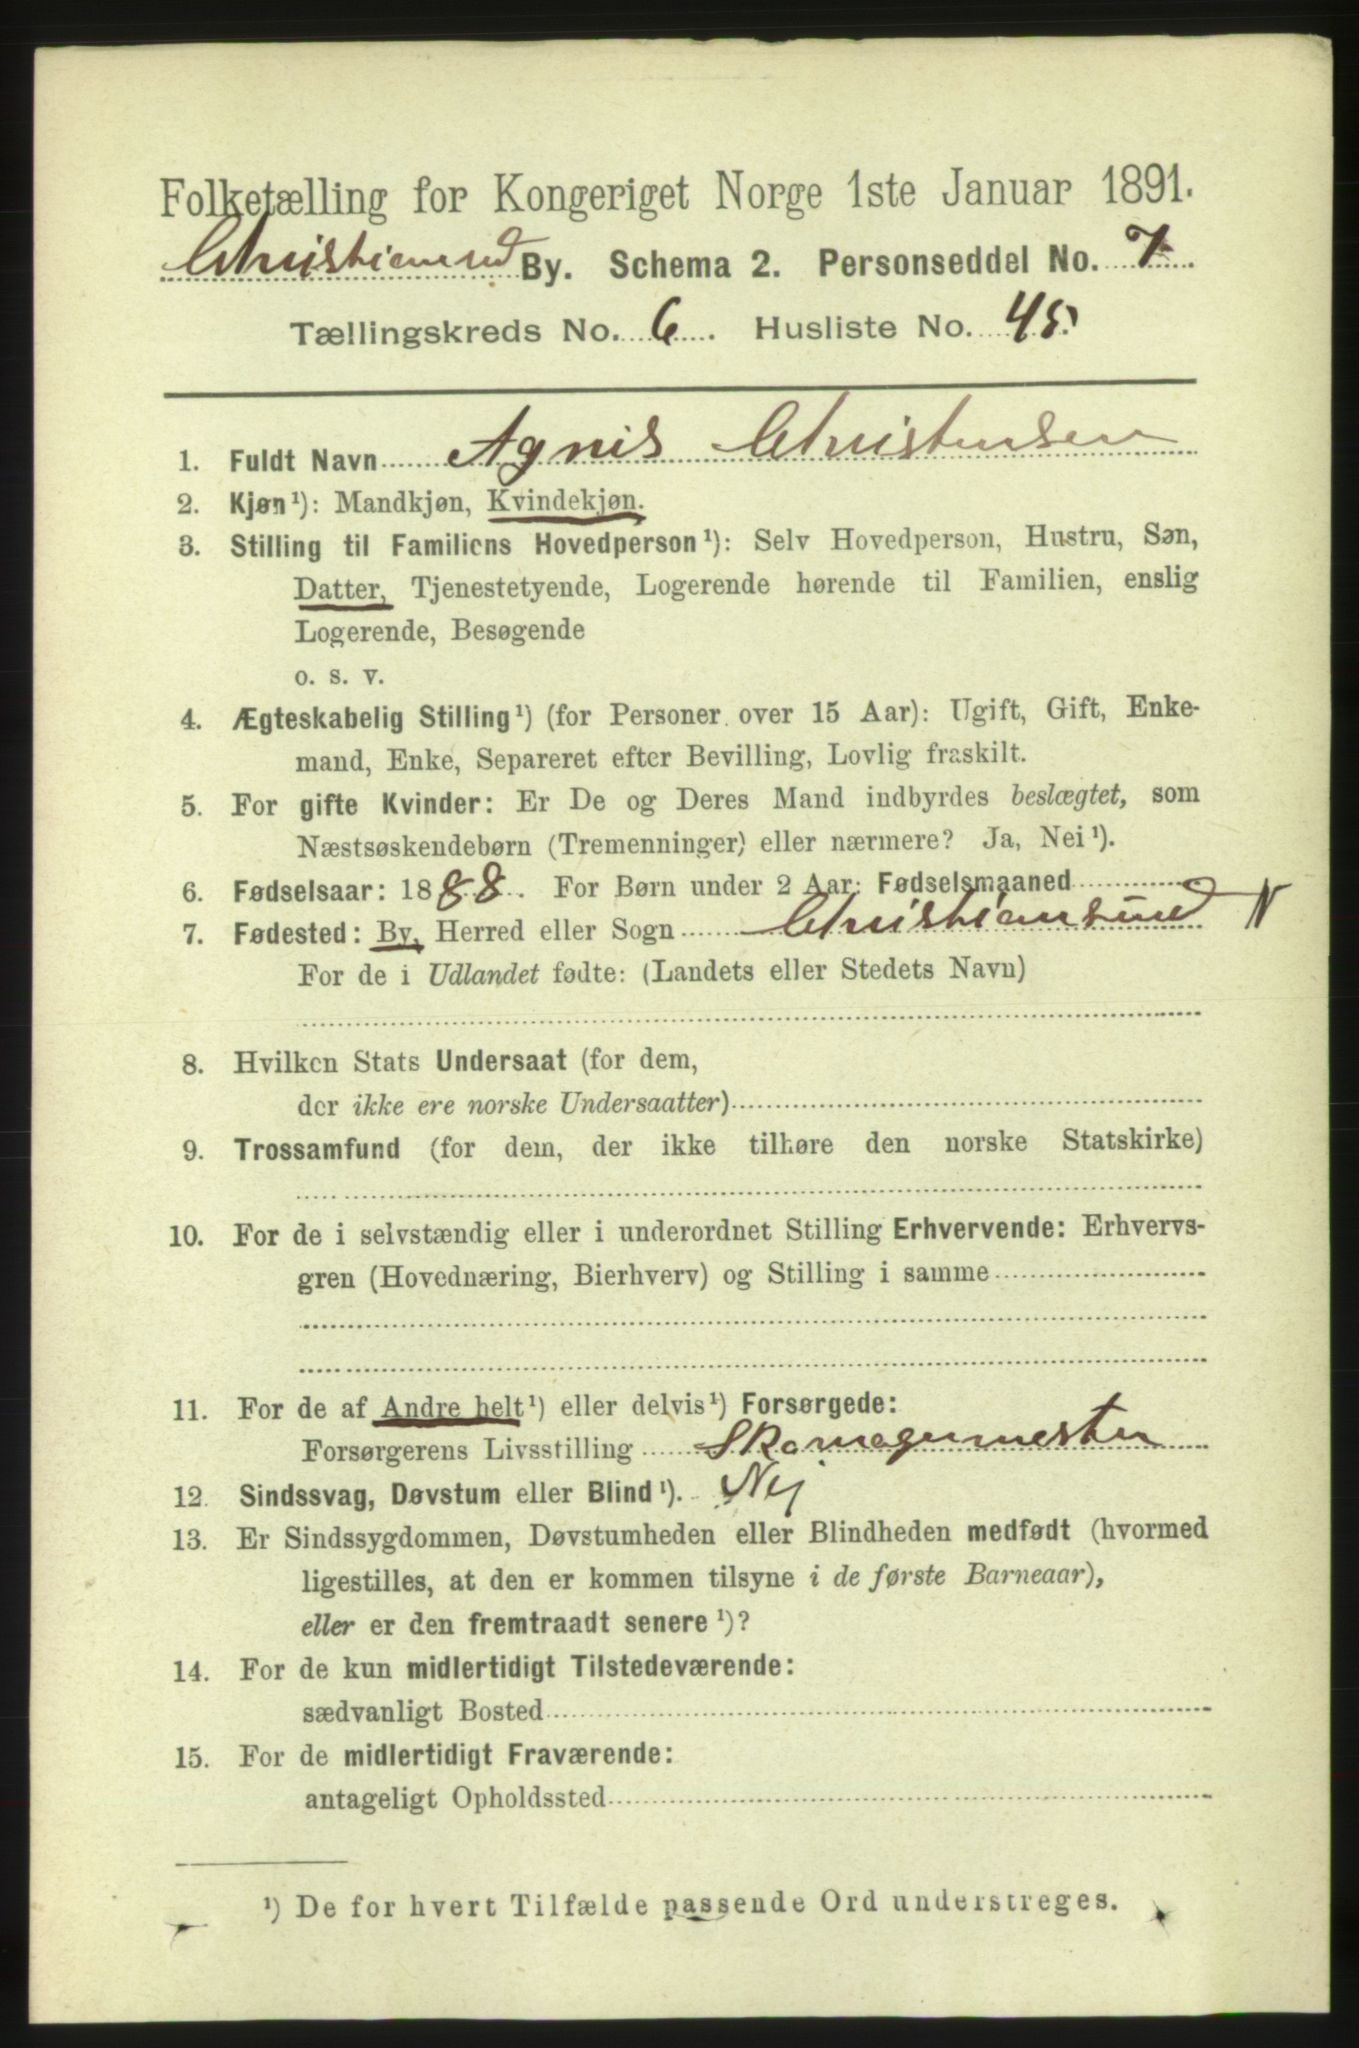 Folketælling for Kongeriget Norge 1ste Januar 1891.
Christiansund By. Schema 2. Personseddel No. 7.
Tællingskreds No. 6. Husliste No. 45.
1. Fuldt Navn Agnis Christensen
2. Kjøn¹): Mandkjøn, Kvindekjøn.
3. Stilling til Familiens Hovedperson¹): Selv Hovedperson, Hustru, Søn,
Datter, Tjenestetyende, Logerende hørende til Familien, enslig
Logerende, Besøgende
o. s. v.
4. Ægteskabelig Stilling¹) (for Personer over 15 Aar): Ugift, Gift, Enke-
mand, Enke, Separeret efter Bevilling, Lovlig fraskilt.
5. For gifte Kvinder: Er De og Deres Mand indbyrdes beslægtet, som
Næstsøskendebørn (Tremenninger) eller nærmere? Ja, Nei¹).
6. Fødselsaar: 1888. For Børn under 2 Aar: Fødselsmaaned
7. Fødested: By, Herred eller Sogn Christiansund N
For de i Udlandet fødte: (Landets eller Stedets Navn)
8. Hvilken Stats Undersaat (for dem,
der ikke ere norske Undersaatter)
9. Trossamfund (for dem, der ikke tilhøre den norske Statskirke)
10. For de i selvstændig eller i underordnet Stilling Erhvervende: Erhvervs-
gren (Hovednæring, Bierhverv) og Stilling i samme
11. For de af Andre helt¹) eller delvis¹) Forsørgede:
Forsørgerens Livsstilling Skomagermester
12. Sindssvag, Døvstum eller Blind¹). Nej
13. Er Sindssygdommen, Døvstumheden eller Blindheden medfødt (hvormed
ligestilles, at den er kommen tilsyne i de første Barneaar),
eller er den fremtraadt senere¹)?
14. For de kun midlertidigt Tilstedeværende:
sædvanligt Bosted
15. For de midlertidigt Fraværende:
antageligt Opholdssted
¹) De for hvert Tilfælde passende Ord understreges.